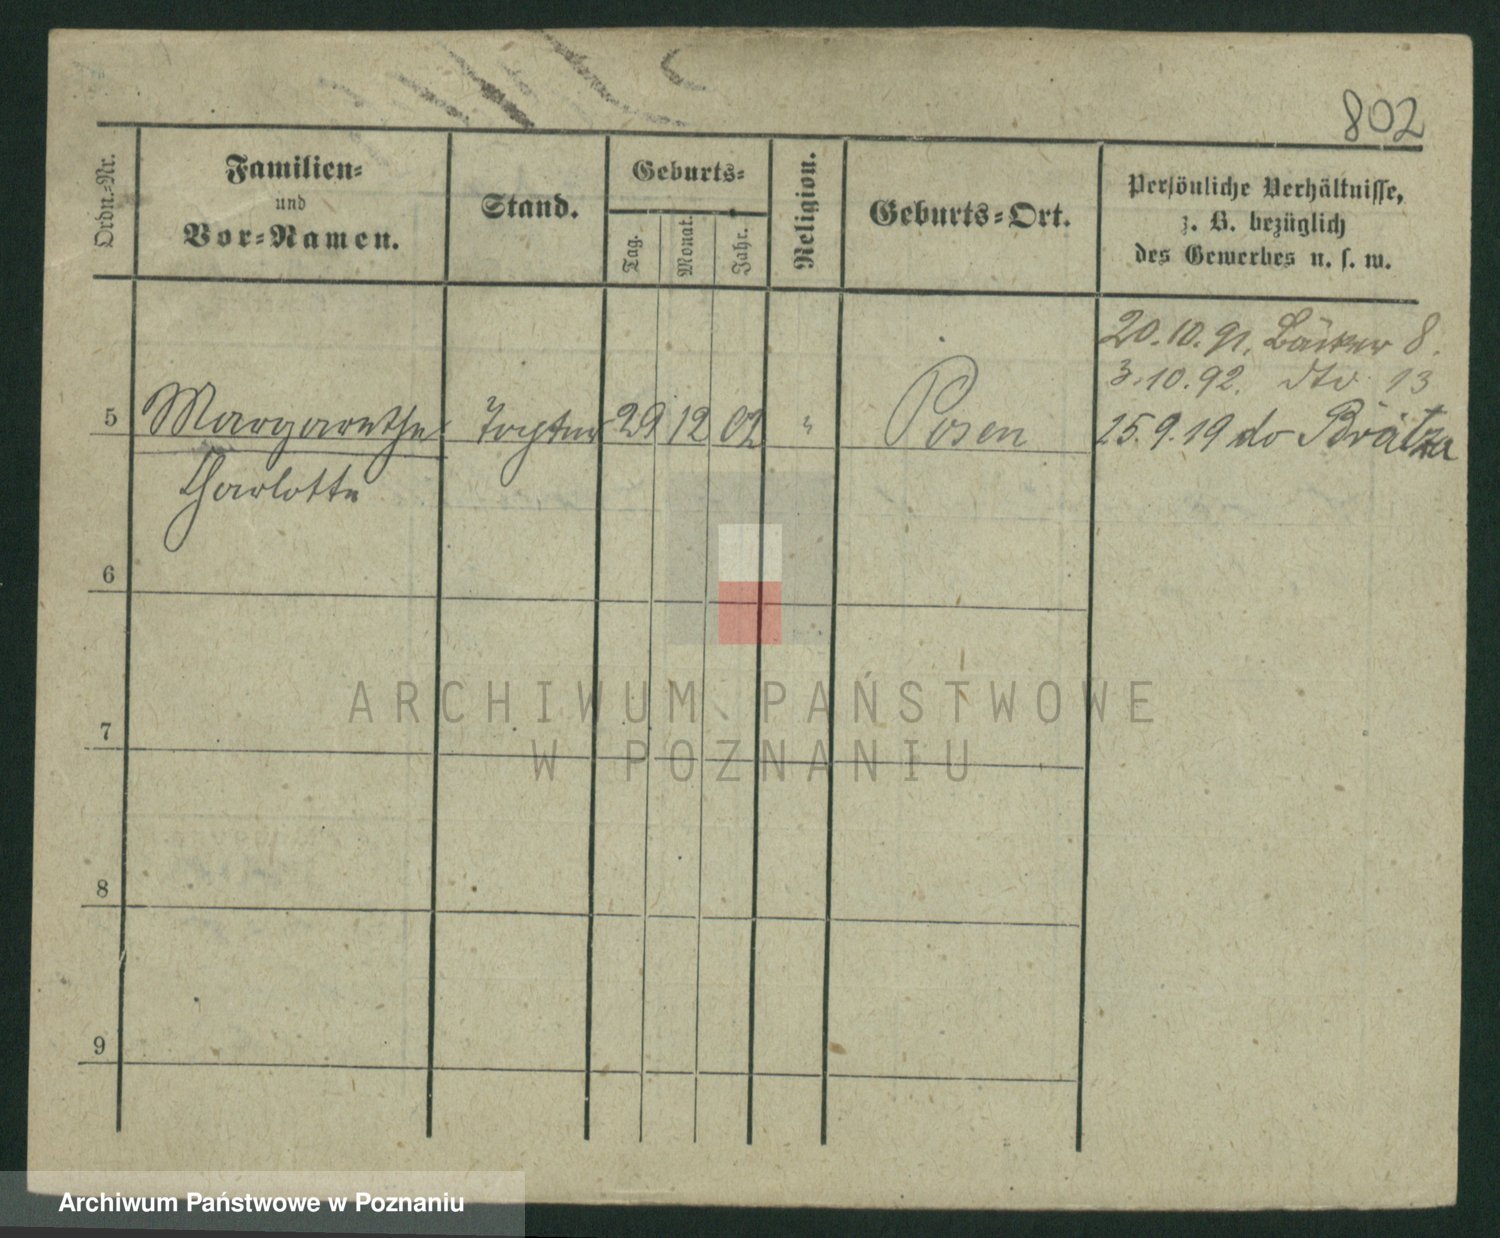 802
Ordn.-Nr.
Familien-
und
Vor-Namen.
Stand.
Geburts-
Tag.
Monat.
Jahr.
Religion.
Geburts-Ort.
Persönliche Verhältnisse,
z. B. bezüglich
des Gewerbes u. s. w.
20.10.91. Bäcker 8.
3.10.92. dto 13
5 Margarethe Tochter 29 12 02 " Posen 25.9.19 do Brätz
Charlotte
6
7
8
9
ARCHIWUM PAŃSTWOWE
W POZNANIU
Archiwum Państwowe w Poznaniu